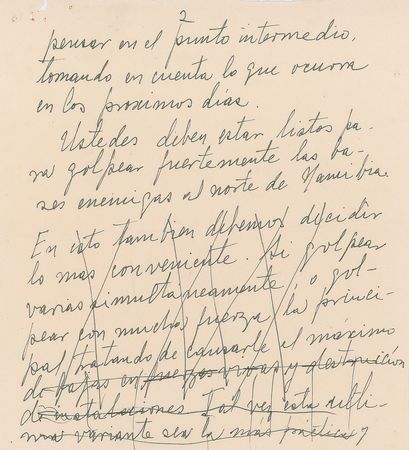 2
pensar en el punto intermedio,
tomando en cuenta lo que ocurra
en los proximos días.
Ustedes deben estar listos pa-
ra golpear fuertemente las ba-
ses enemigas al norte de Namibia.
En esto tambien debemos decidir
lo mas conveniente. Si golpear
varias simultaneamente, o gol-
pear con mucha fuerza la princi-
pal tratando de causarle el máximo
de bajas en fuerzas vivas y destrucción
de instalaciones. Tal vez esta ulti-
ma variante sea la más práctica y